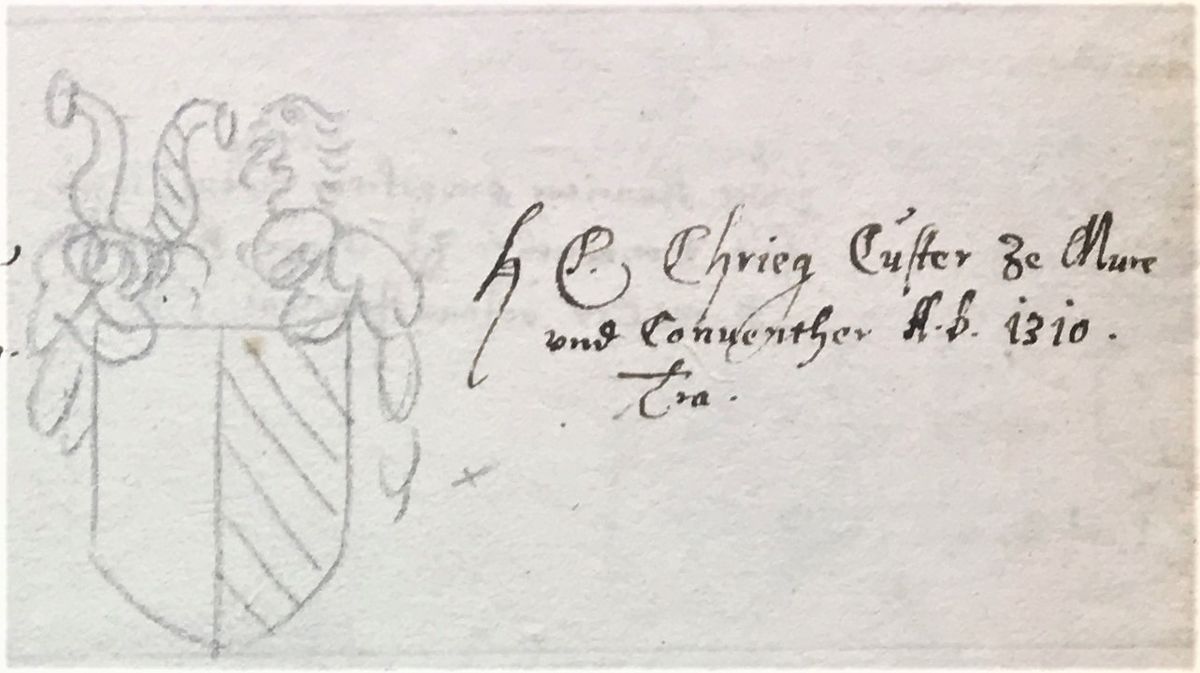 H C. Chrieg Cuͦster ze Mure
vnd Conuenther A.b. 1310.
Tra.